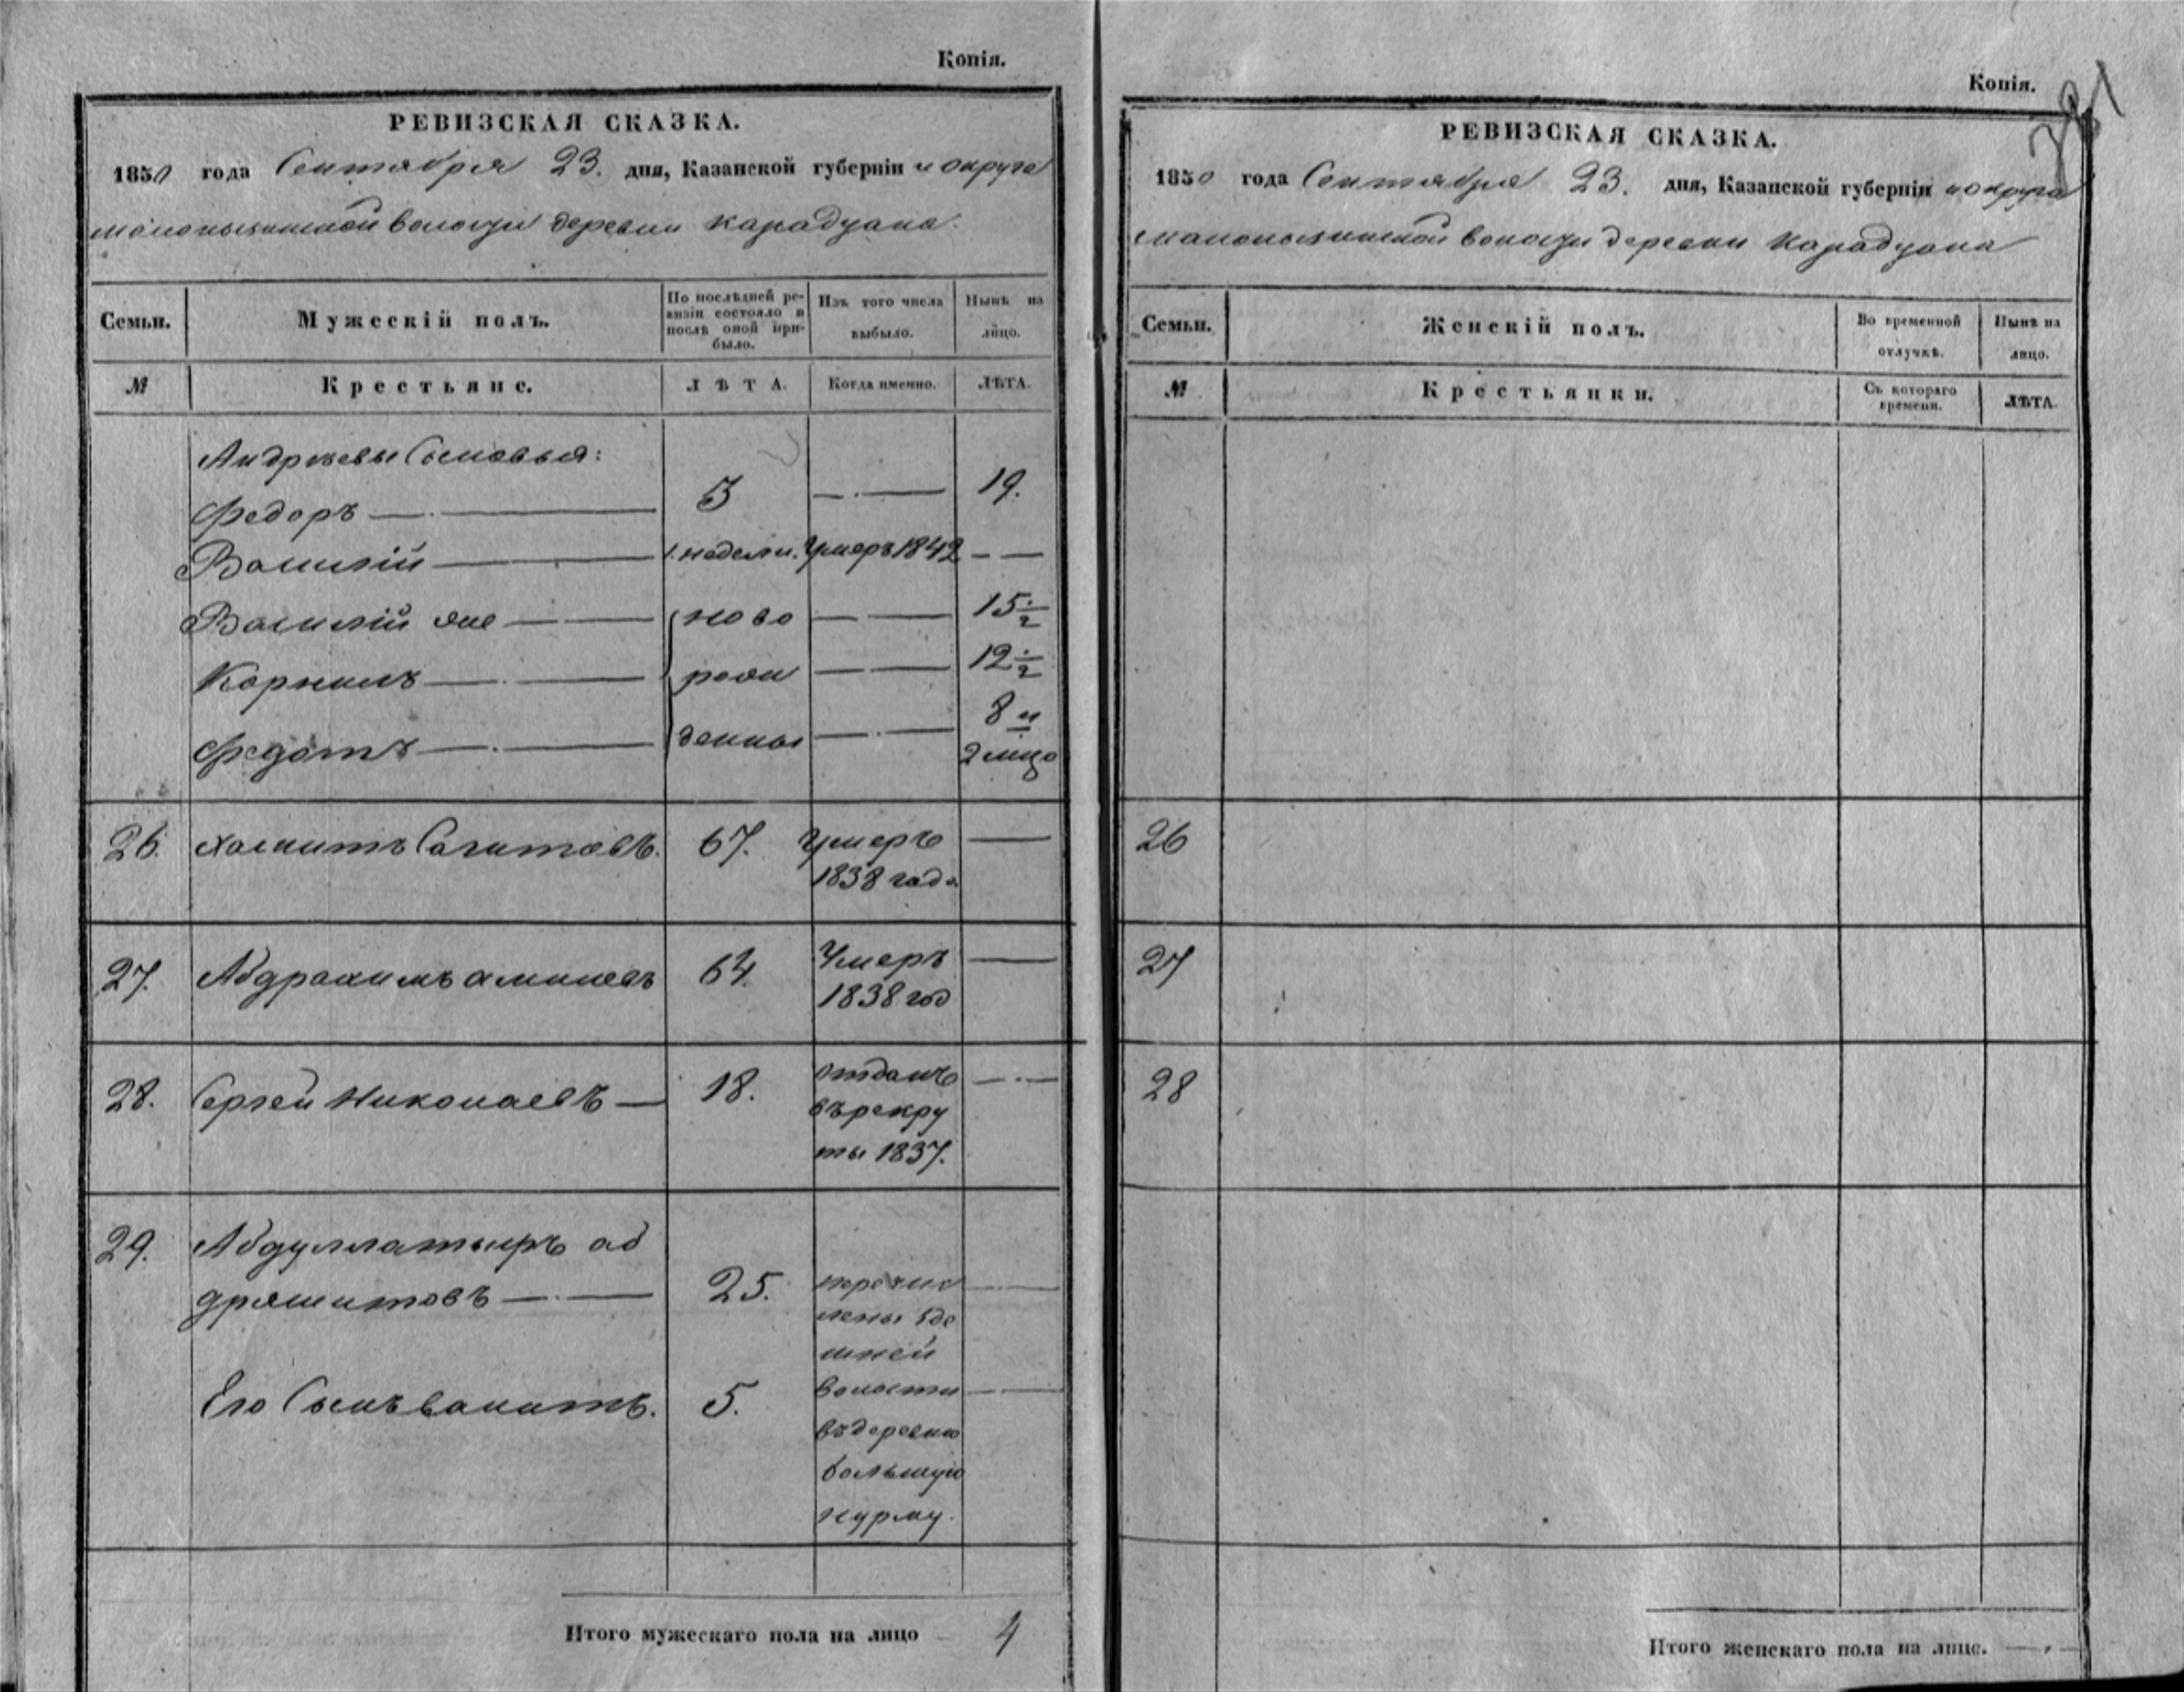 Копія.
РЕВИЗСКАЯ СКАЗКА.
1850 года Сентября 23. дня, Казанской губерніи и округа
волости деревни Карадуана.
Семьи.
Мужескій полъ.
По послѣдней ре-
визіи состояло и
послѣ оной при-
было.
Изъ того числа
выбыло.
Нынѣ на
лицо.
№
Крестьяне.
ЛѢТА.
Когда именно.
ЛѢТА.
Андреевы Сыновья:
Федоръ — 3 — 19.
Василій — 1. недели. Умеръ 1842 —
Василій дие — ново — 15 1/2
Корнилъ — рож — 12 1/2
Федотъ — денны — 8 и
2 мцо
26. Хамитъ Сагитовъ. 67. Умеръ —
1838 года
27. Абдрахимъ аминевъ 64. Умеръ —
1838 год
28. Сергей Николаевъ — 18. отданъ —
въ рекру
ты 1837.
29. Абдуллатыфъ аб
дряшитовъ — 25. перечис —
лены зде
шней
Его Сынъ вахитъ. 5. волости —
въ деревню
большую
нурму.
Итого мужескаго пола на лицо 4
Копія.
РЕВИЗСКАЯ СКАЗКА.
1850 года Сентября 23. дня, Казанской губерніи и округа
волости деревни Карадуана
Семьи.
Женскій полъ.
Во временной
отлучкѣ.
Нынѣ на
лицо.
№
Крестьянки.
Съ котораго
времени.
ЛѢТА.
26
27
28
Итого женскаго пола на лице. —